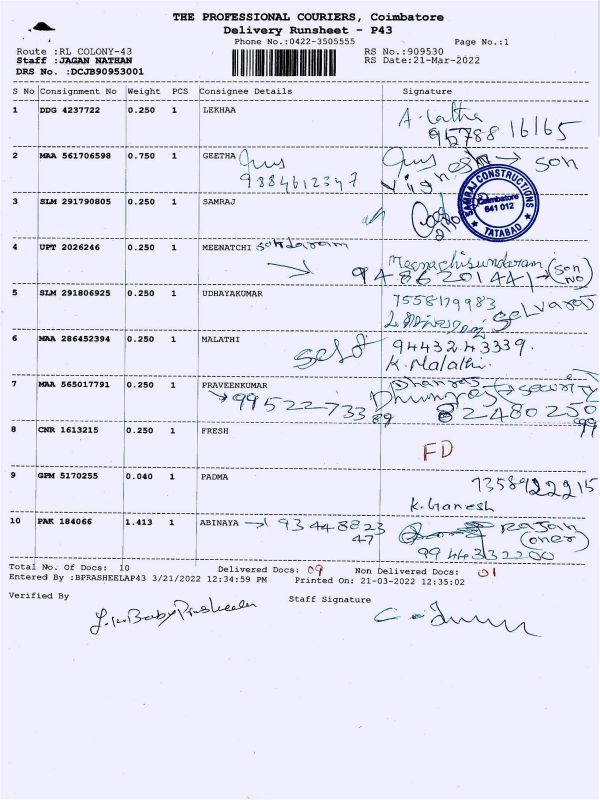 THE PROFESSIONAL COURIERS, Coimbatore
Delivery Runsheet - P43
Phone No.:0422-3505555 Page No.:1
Route :RL COLONY-43 RS No.:909530
Staff :JAGAN NATHAN RS Date:21-Mar-2022
DRS No. :DCJB90953001
S No Consignment No Weight PCS Consignee Details Signature
1 DDG 4237722 0.250 1 LEKHAA A. Latha
95788 16165
2 MAA 561706598 0.750 1 GEETHA son
9884612347
3 SLM 291790805 0.250 1 SAMRAJ
SAMRAJ CONSTRUCTIONS
Coimbatore
641 012
TATABAD
4 UPT 2026246 0.250 1 MEENATCHI Sundaram Meenachisundaram (son
9486201441 → NO)
5 SLM 291806925 0.250 1 UDHAYAKUMAR 7558179983
Selvaraj
6 MAA 286452394 0.250 1 MALATHI Self 9443243339.
K. Malathi.
7 MAA 565017791 0.250 1 PRAVEENKUMAR Dhanraj → security
8 CNR 1613215 0.250 1 FRESH FD
9 GPM 5170255 0.040 1 PADMA 7358922215
K. Ganesh
10 PAK 184066 1.413 1 ABINAYA → 93448823
47 Rajan
(oner)
9944332200
Total No. Of Docs: 10 Delivered Docs: 09 Non Delivered Docs: 01
Entered By :BPRASHEELAP43 3/21/2022 12:34:59 PM Printed On: 21-03-2022 12:35:02
Verified By Staff Signature